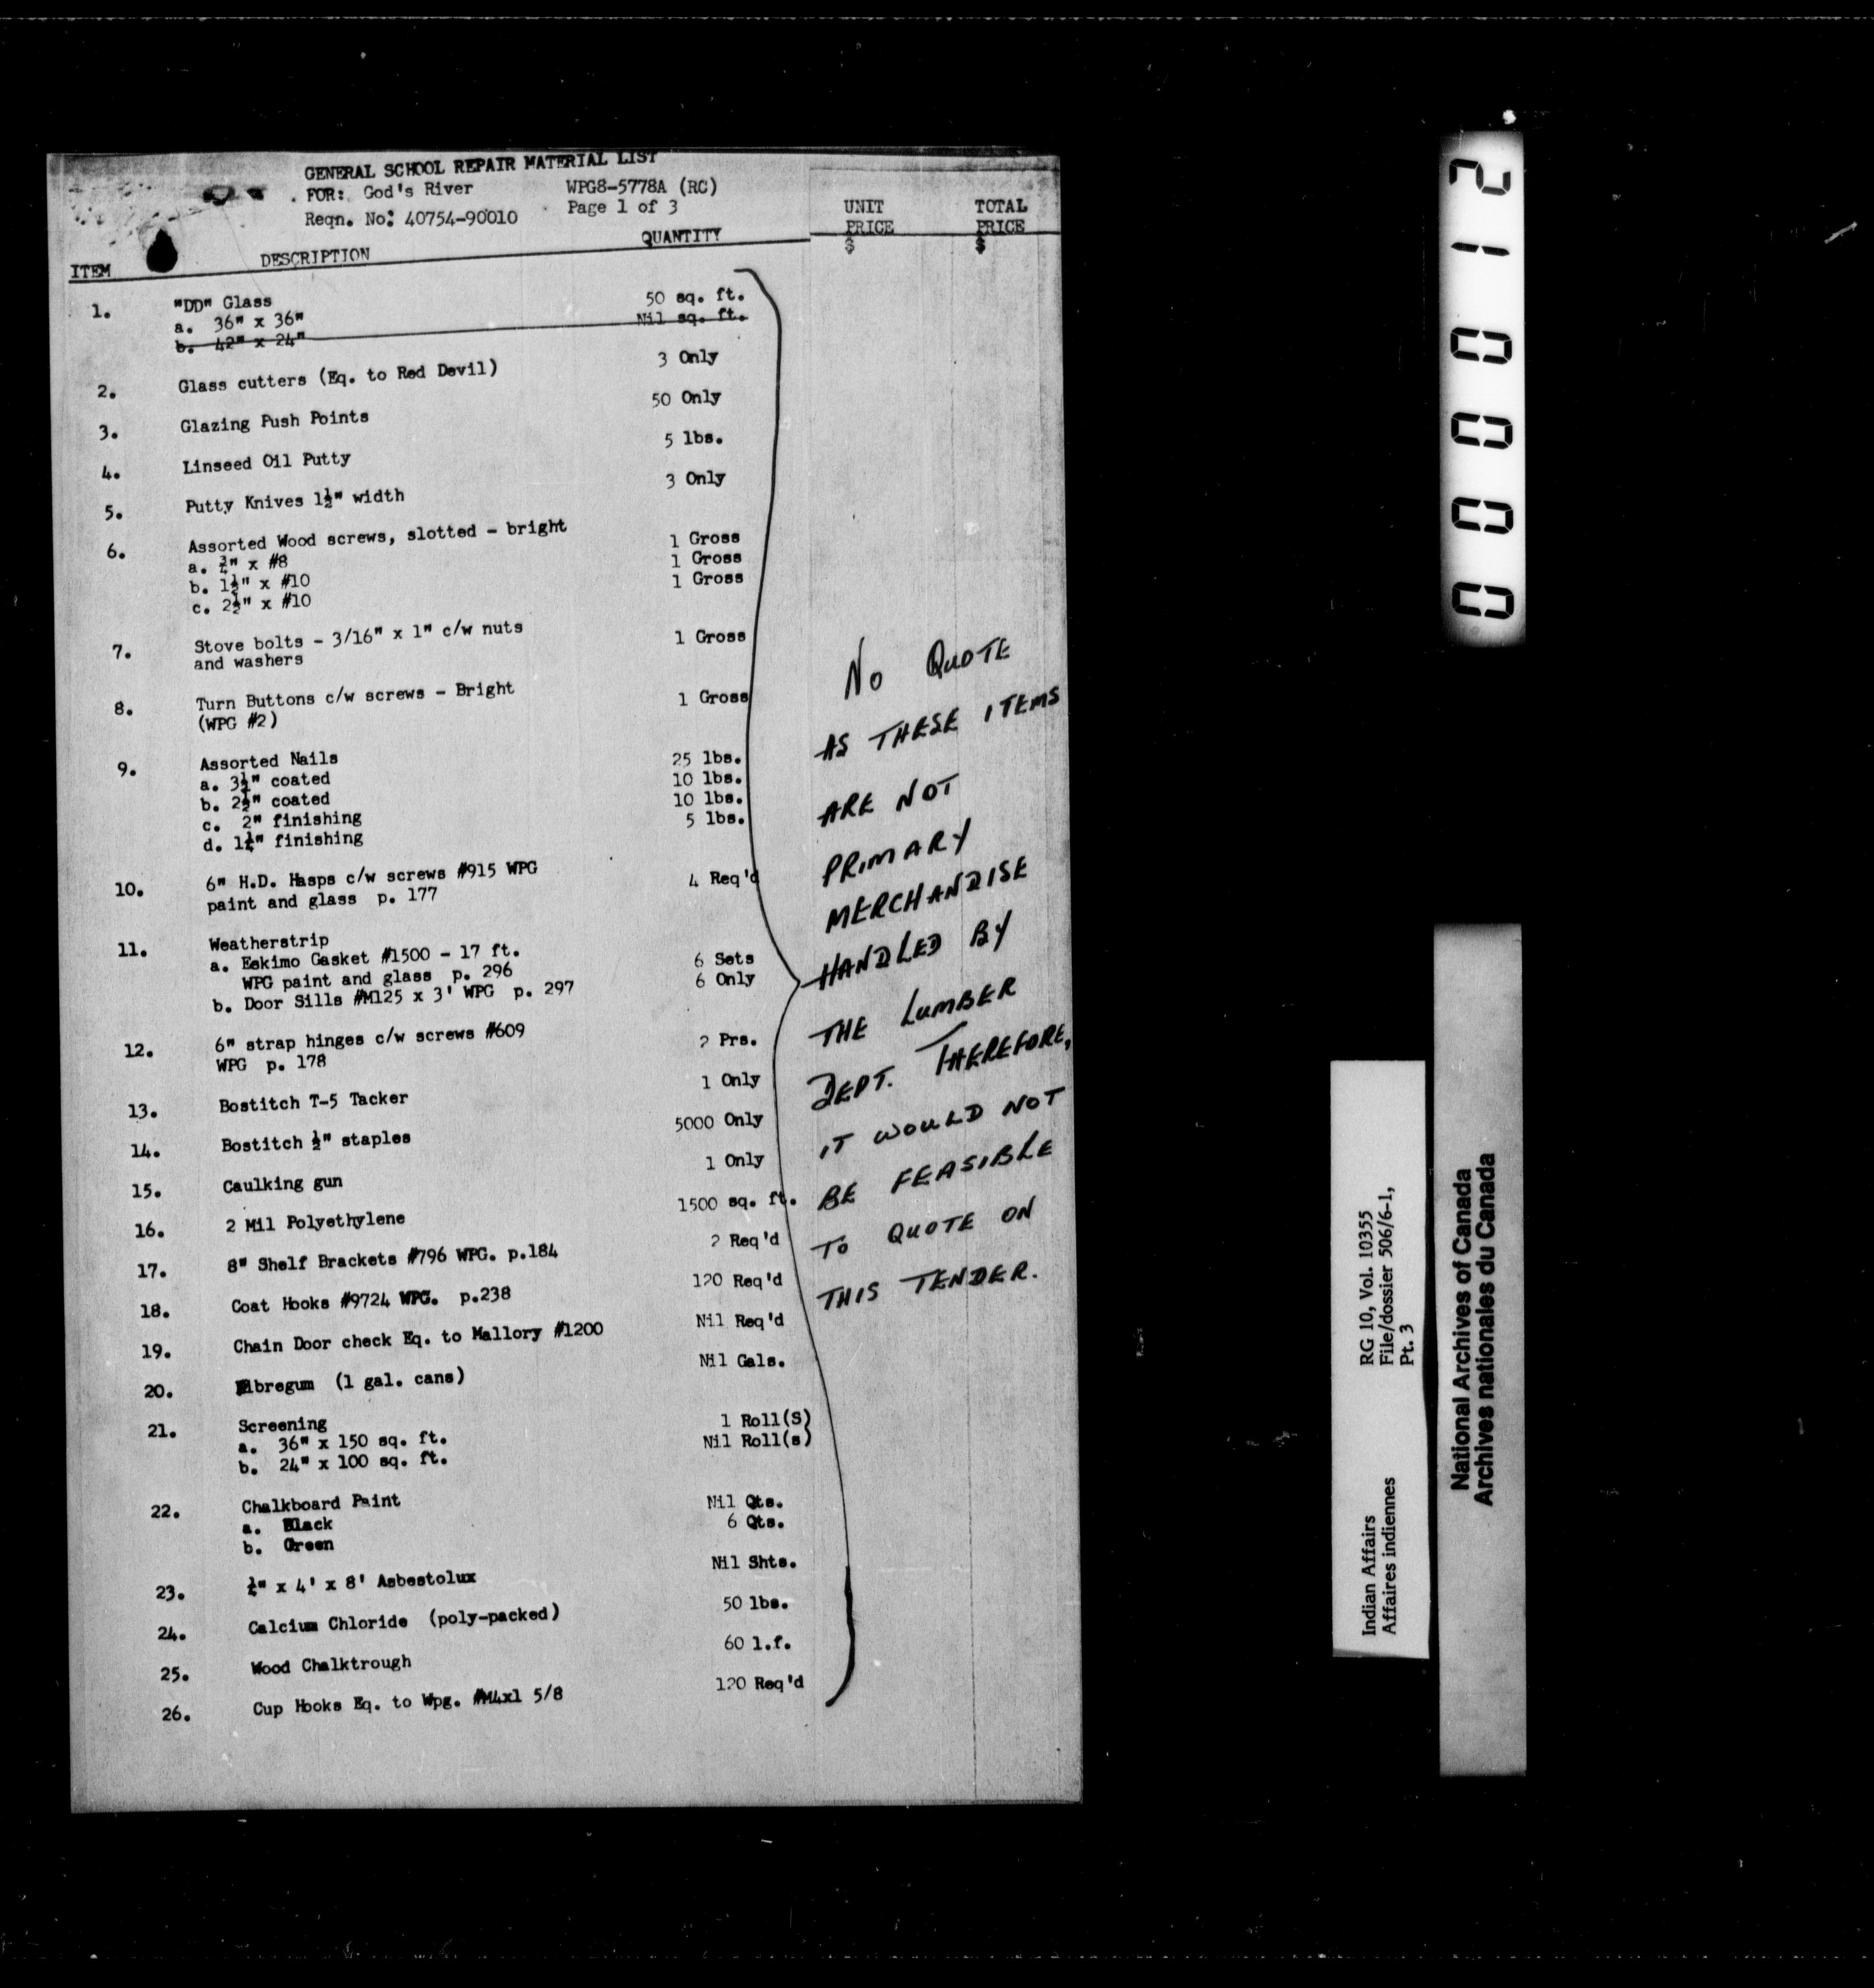 GENERAL SCHOOL REPAIR MATERIAL LIST
FOR: God's River WPG8-5778A (RC)
Reqn. No: 40754-90010 Page 1 of 3
UNIT PRICE $ TOTAL PRICE $
ITEM DESCRIPTION QUANTITY
1. "DD" Glass
a. 36" x 36" 50 sq. ft.
b. 42" x 24" Nil sq. ft.
2. Glass cutters (Eq. to Red Devil) 3 Only
3. Glazing Push Points 50 Only
4. Linseed Oil Putty 5 lbs.
5. Putty Knives 1½" width 3 Only
6. Assorted Wood screws, slotted - bright
a. ¾" x #8 1 Gross
b. 1½" x #10 1 Gross
c. 2½" x #10 1 Gross
7. Stove bolts - 3/16" x 1" c/w nuts 1 Gross
and washers
8. Turn Buttons c/w screws - Bright 1 Gross
(WPG #2)
9. Assorted Nails
a. 3½" coated 25 lbs.
b. 2½" coated 10 lbs.
c. 2" finishing 10 lbs.
d. 1¼" finishing 5 lbs.
10. 6" H.D. Hasps c/w screws #915 WPG 4 Req'd
paint and glass p. 177
11. Weatherstrip
a. Eskimo Gasket #1500 - 17 ft. 6 Sets
WPG paint and glass p. 296
b. Door Sills #M125 x 3' WPG p. 297 6 Only
12. 6" strap hinges c/w screws #609 2 Prs.
WPG p. 178
13. Bostitch T-5 Tacker 1 Only
14. Bostitch ½" staples 5000 Only
15. Caulking gun 1 Only
16. 2 Mil Polyethylene 1500 sq. ft.
17. 8" Shelf Brackets #796 WPG. p.184 2 Req'd
18. Coat Hooks #9724 WPG. p.238 120 Req'd
19. Chain Door check Eq. to Mallory #1200 Nil Req'd
20. Fibregum (1 gal. cans) Nil Gals.
21. Screening
a. 36" x 150 sq. ft. 1 Roll(S)
b. 24" x 100 sq. ft. Nil Roll(s)
22. Chalkboard Paint
a. Black Nil Qts.
b. Green 6 Qts.
23. ¼" x 4' x 8' Asbestolux Nil Shts.
24. Calcium Chloride (poly-packed) 50 lbs.
25. Wood Chalktrough 60 l.f.
26. Cup Hooks Eq. to Wpg. #M4x1 5/8 120 Req'd
NO QUOTE
AS THESE ITEMS
ARE NOT
PRIMARY
MERCHANDISE
HANDLED BY
THE LUMBER
DEPT. THEREFORE,
IT WOULD NOT
BE FEASIBLE
TO QUOTE ON
THIS TENDER.
000012
Indian Affairs RG 10, Vol. 10355
Affaires indiennes File/dossier 506/6-1,
Pt. 3
National Archives of Canada
Archives nationales du Canada